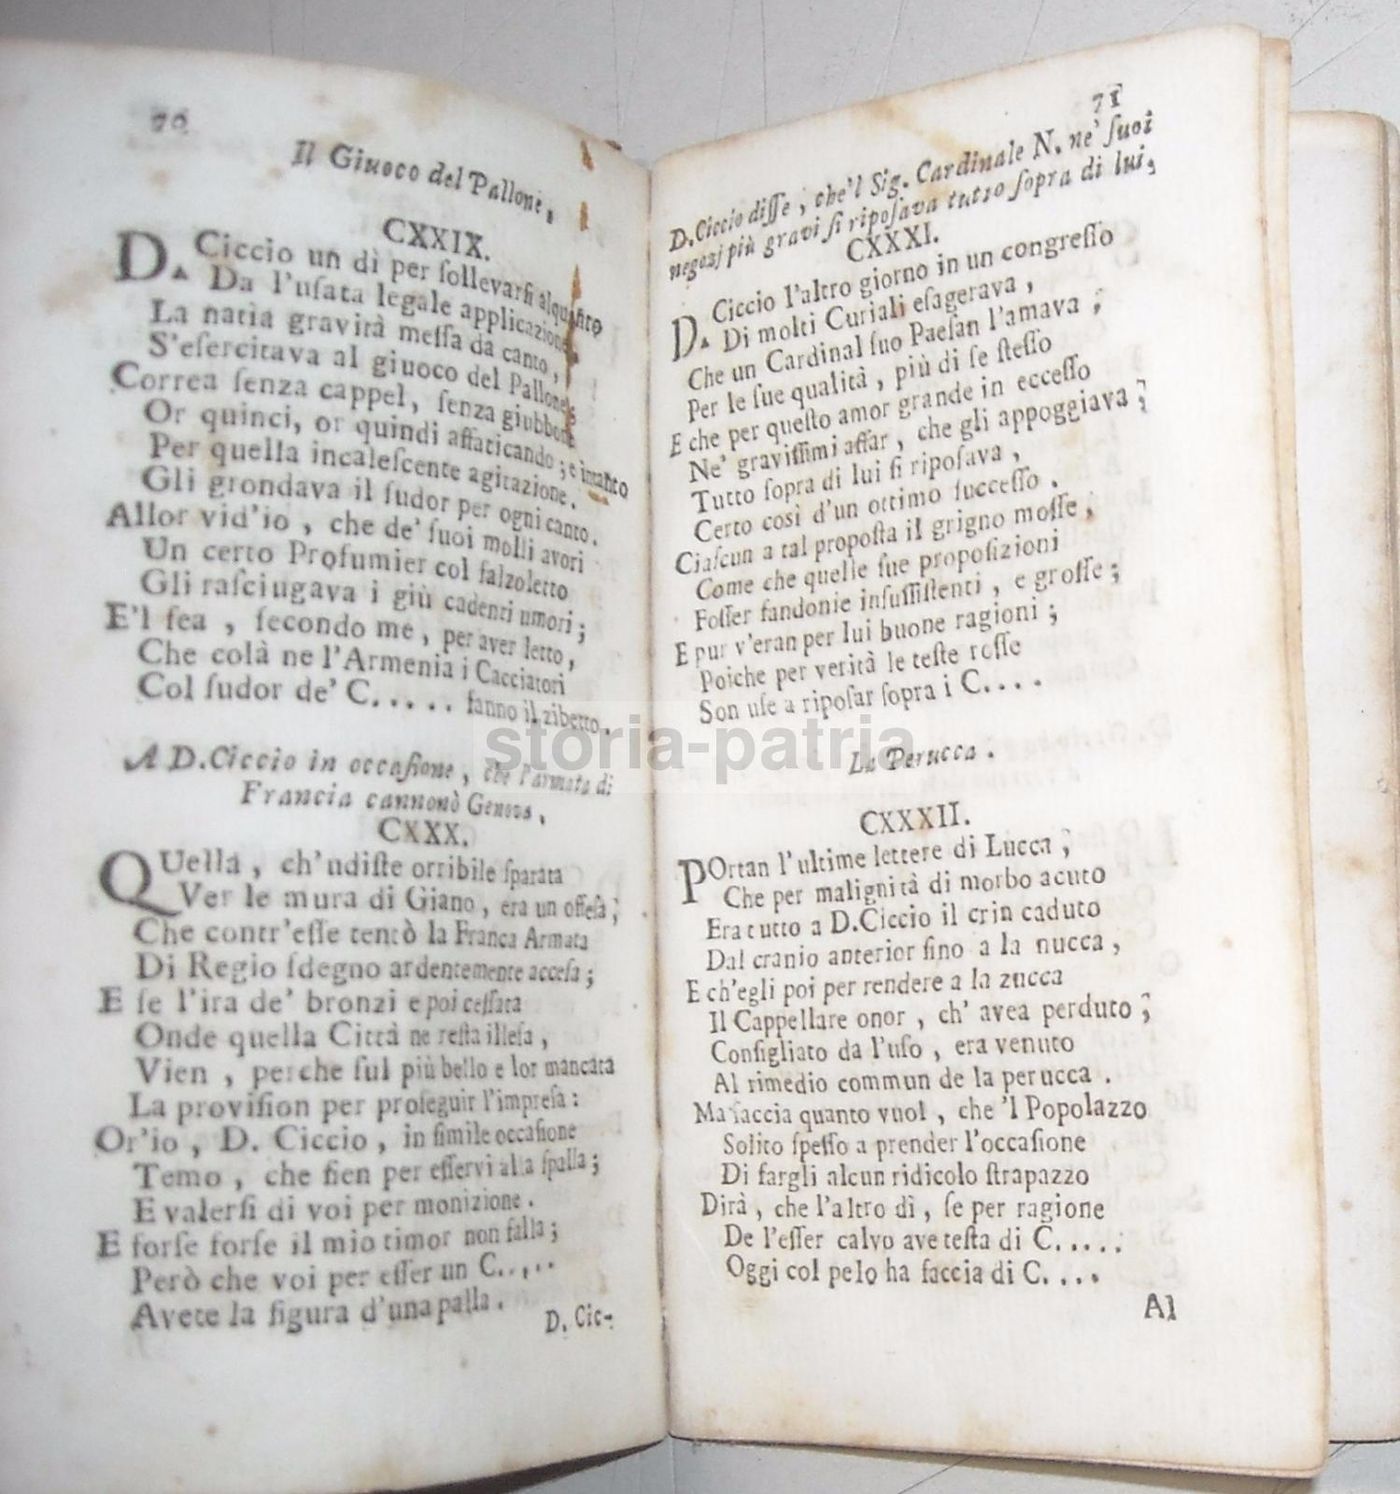 70
Il Giuoco del Pallone,
CXXIX.
D. Ciccio un dì per ſollevarſi alquanto
Da l'uſata legale applicazione
La natia gravità meſſa da canto,
S'eſercitava al giuoco del Pallone;
Correa ſenza cappel, ſenza giubbone
Or quinci, or quindi affaticando; e intanto
Per quella incaleſcente agitazione.
Gli grondava il ſudor per ogni canto.
Allor vid'io, che de' ſuoi molli avori
Un certo Profumier col falzoletto
Gli raſciugava i giù cadenti umori;
E'l fea, ſecondo me, per aver letto,
Che colà ne l'Armenia i Cacciatori
Col ſudor de' C..... fanno il zibetto.
A D. Ciccio in occaſione, che l'armata di
Francia cannonò Genova.
CXXX.
QUella, ch'udiſte orribile ſparata
Ver le mura di Giano, era un offeſa;
Che contr'eſſe tentò la Franca Armata
Di Regio ſdegno ardentemente acceſa;
E ſe l'ira de' bronzi e poi ceſſata
Onde quella Città ne reſta illeſa,
Vien, perche ſul più bello e lor mancata
La proviſion per proſeguir l'impreſa:
Or'io, D. Ciccio, in ſimile occaſione
Temo, che ſien per eſſervi al a ſpalla;
E valerſi di voi per monizione.
E forſe forſe il mio timor non falla;
Però che voi per eſſer un C.....
Avete la figura d'una palla.
D. Cic-
71
D. Ciccio diſſe, che'l Sig. Cardinale N. ne' ſuoi
negozj più gravi ſi ripoſava tutto ſopra di lui.
CXXXI.
D. Ciccio l'altro giorno in un congreſſo
Di molti Curiali eſagerava,
Che un Cardinal ſuo Paeſan l'amava;
Per le ſue qualità, più di ſe ſteſſo
E che per queſto amor grande in ecceſſo
Ne' graviſſimi affar, che gli appoggiava;
Tutto ſopra di lui ſi ripoſava,
Certo così d'un ottimo ſucceſſo.
Ciaſcun a tal propoſta il grigno moſſe,
Come che quelle ſue propoſizioni
Foſſer fandonie inſuſſiſtenti, e groſſe;
E pur v'eran per lui buone ragioni;
Poiche per verità le teſte roſſe
Son uſe a ripoſar ſopra i C....
La Perucca.
CXXXII.
POrtan l'ultime lettere di Lucca;
Che per malignità di morbo acuto
Era tutto a D. Ciccio il crin caduto
Dal cranio anterior ſino a la nucca,
E ch'egli poi per rendere a la zucca
Il Cappellare onor, ch'avea perduto;
Conſigliato da l'uſo, era venuto
Al rimedio commun de la perucca.
Ma faccia quanto vuol, che 'l Popolazzo
Solito ſpeſſo a prender l'occaſione
Di fargli alcun ridicolo ſtrapazzo
Dirà, che l'altro dì, ſe per ragione
De l'eſſer calvo ave teſta di C.....
Oggi col pelo ha faccia di C....
Al
storia-patria